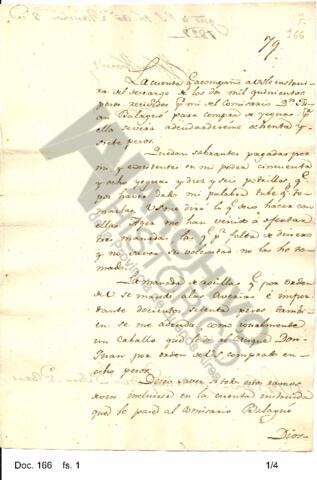 7.
166
79
La cuenta q.e acompaño a V.S. le instruira
del descargo de los dos mil quinientos
pesos recividos p.r mi del Comisario D.n
Balagué para compra de yeguas: p.r
ella se verá adeudarseme ochenta y
siete pesos.
Quedan sobrantes pagadas por
mi, y existentes en mi poder cinquenta
y ocho yeguas y diez y seis potrillos, q.e
por haver dado mi palabra tube q.e to-
marlas V.S. me dira lo q.e devo hacer con
ellas. Ayer me han venido á ofertar
tres manadas las q.e p.r falta de dinero
y no saver su voluntad no las he to-
mado.
La manada de rosillas q.e por orden
de V.S. se mandó a las Averias é impor-
tante docientos setenta pesos tambi-
en se me adeuda como igualmente
un Caballo que
por orden de V.S. comprado en
ocho pesos.
Deseo saver si todos estos ramos
deven incluirse en la cuenta
que le pasé al Comisario Balagué
Dios
ARCHIVO
HISTÓRICO
de la Provincia de
Doc. 166 fs. 1
1/4